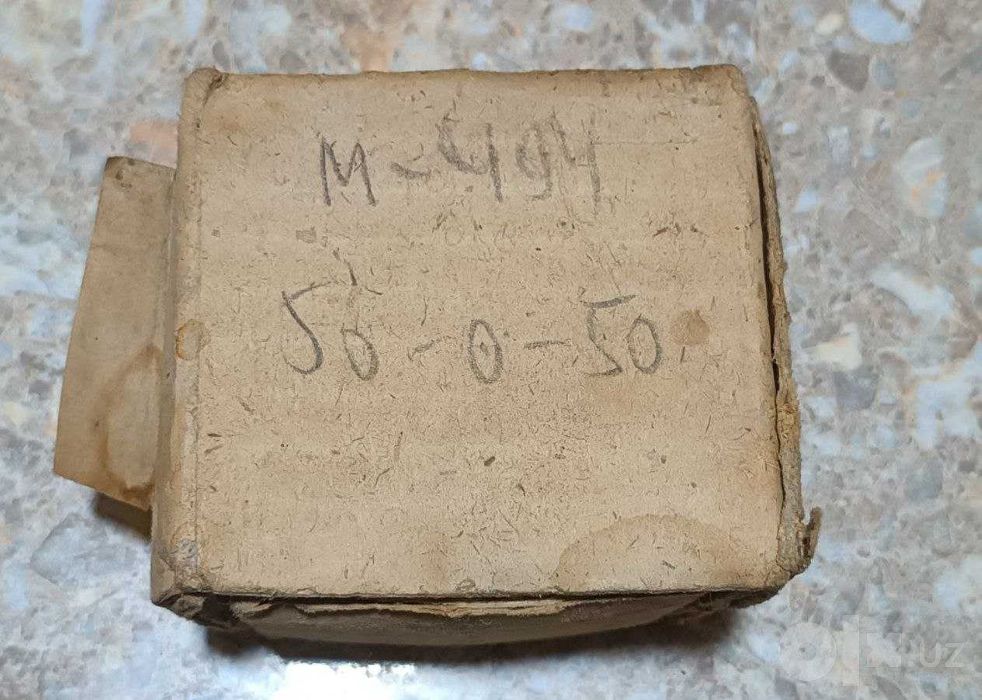 М-494
50-0-50
olx.uz